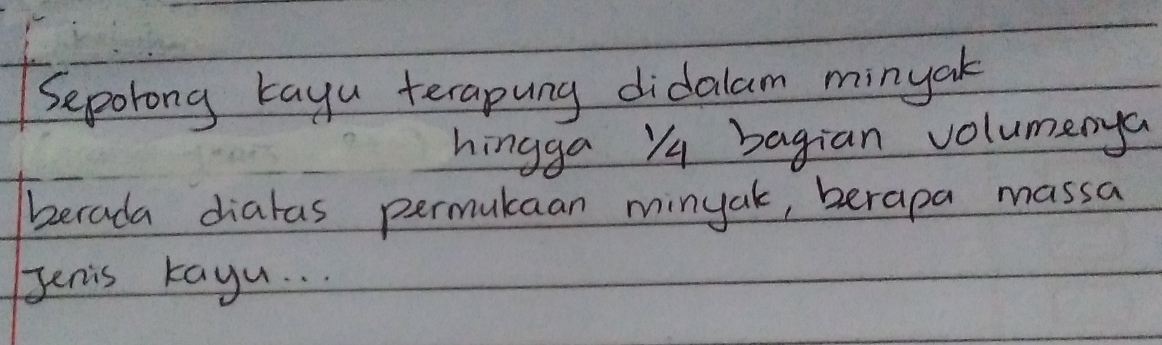 Sepotong kayu terapung didalam minyak
hingga 1/4 bagian volumenya
berada diatas permukaan minyak, berapa massa
Jenis kayu...